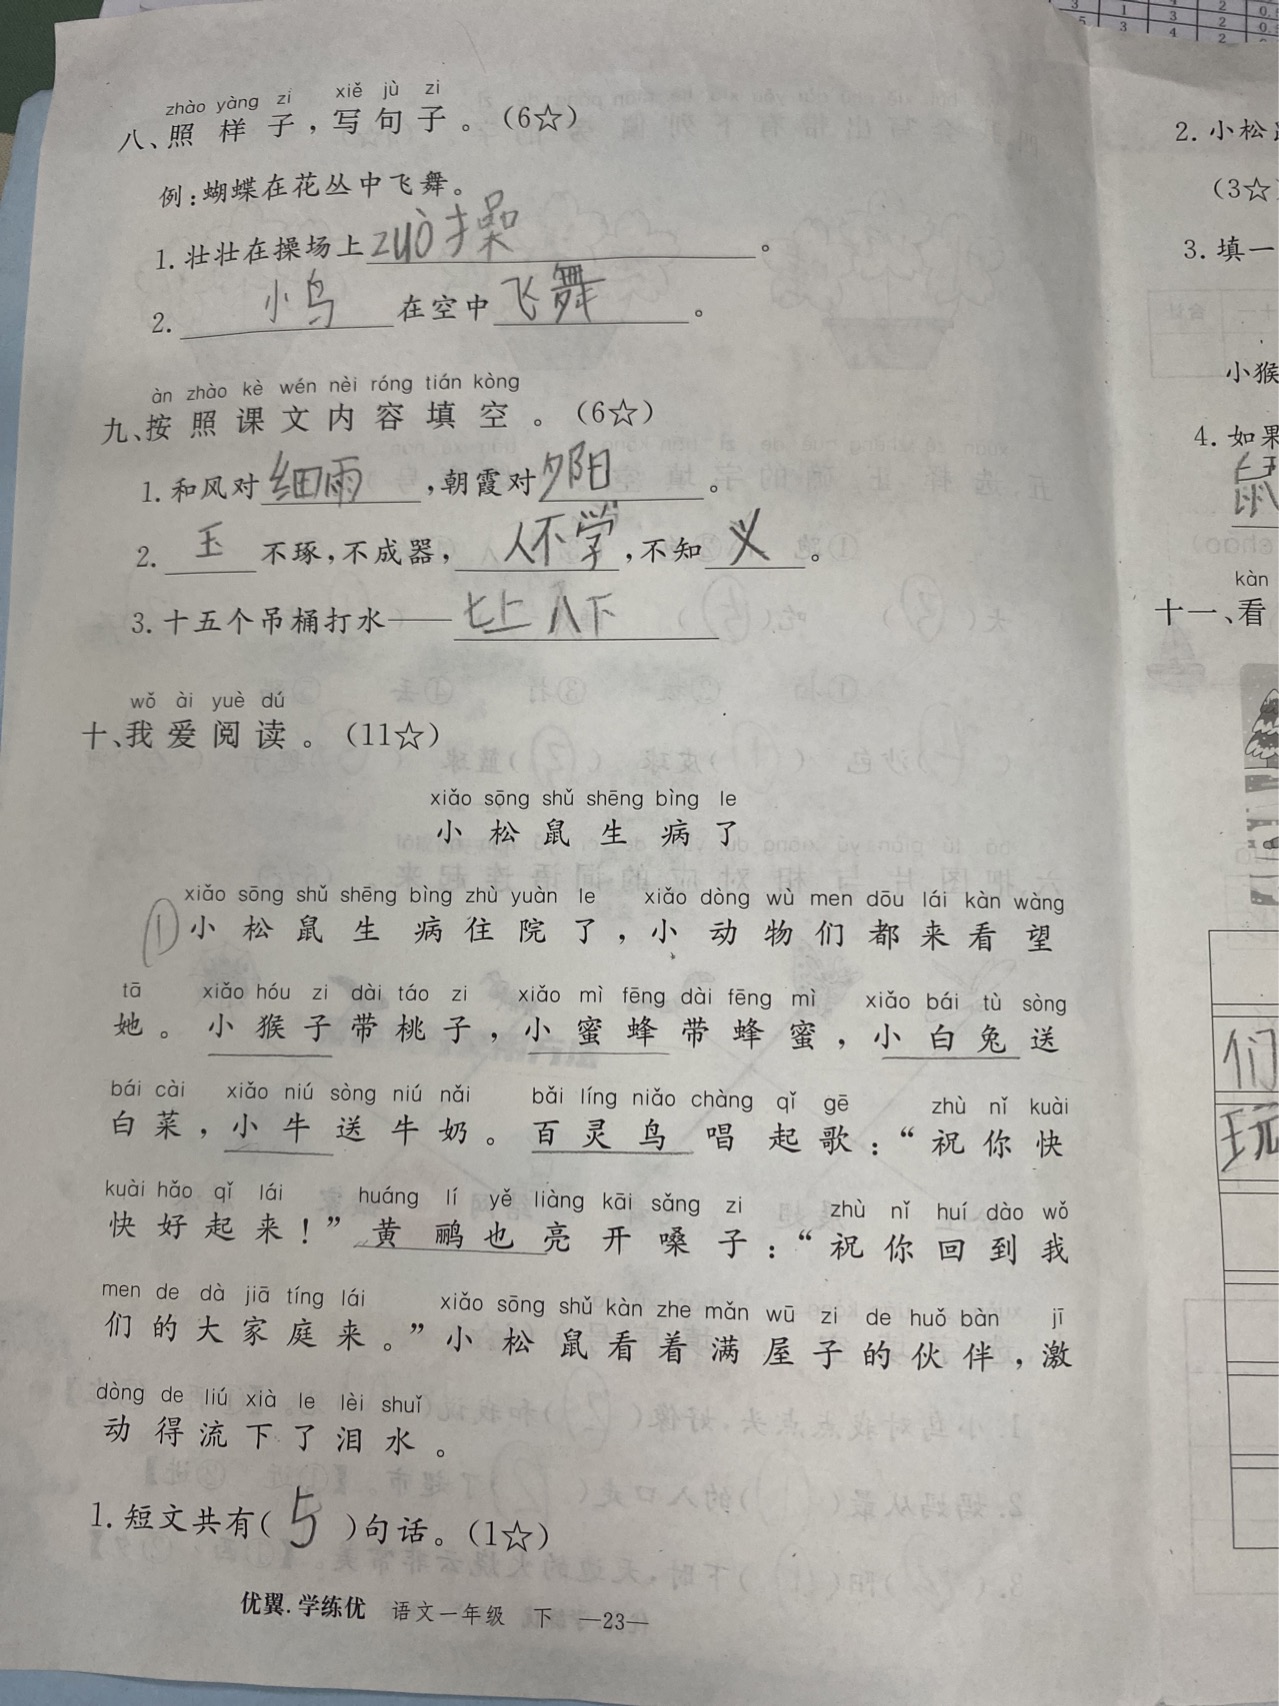 zhào yàng zi xiě jù zi
八、照样子，写句子。（6☆）
例：蝴蝶在花丛中飞舞。
1. 壮壮在操场上zuò操。
2. 小鸟在空中飞舞。
àn zhào kè wén nèi róng tián kòng
九、按照课文内容填空。（6☆）
1. 和风对细雨，朝霞对夕阳。
2. 玉不琢，不成器，人不学，不知义。
3. 十五个吊桶打水——七上八下
wǒ ài yuè dú
十、我爱阅读。（11☆）
xiǎo sōng shǔ shēng bìng le
小松鼠生病了
xiǎo sōng shǔ shēng bìng zhù yuàn le xiǎo dòng wù men dōu lái kàn wàng
① 小松鼠生病住院了，小动物们都来看望
tā xiǎo hóu zi dài táo zi xiǎo mì fēng dài fēng mì xiǎo bái tù sòng
她。小猴子带桃子，小蜜蜂带蜂蜜，小白兔送
bái cài xiǎo niú sòng niú nǎi bǎi líng niǎo chàng qǐ gē zhù nǐ kuài
白菜，小牛送牛奶。百灵鸟唱起歌：“祝你快
kuài hǎo qǐ lái huáng lí yě liàng kāi sǎng zi zhù nǐ huí dào wǒ
快好起来！”黄鹂也亮开嗓子：“祝你回到我
men de dà jiā tíng lái xiǎo sōng shǔ kàn zhe mǎn wū zi de huǒ bàn jī
们的大家庭来。”小松鼠看着满屋子的伙伴，激
dòng de liú xià le lèi shuǐ
动得流下了泪水。
1. 短文共有（ 5 ）句话。（1☆）
优翼.学练优 语文一年级 下 —23—
2. 小松
（3☆
3. 填一
小猴
4. 如果
鼠
kàn
十一、看
们
玩